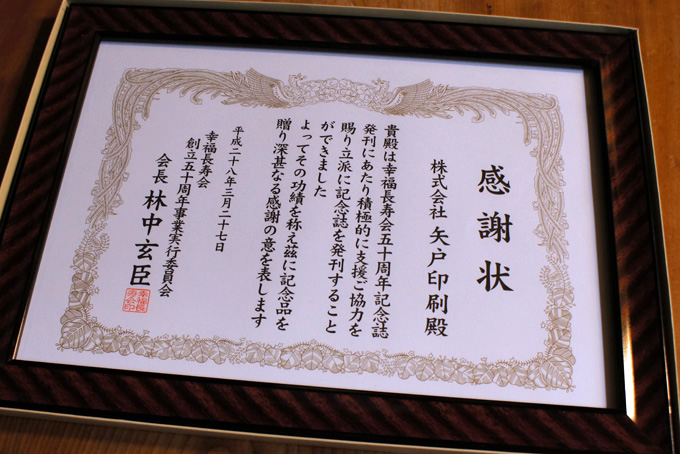 感謝状
株式会社 矢戸印刷殿
貴殿は幸福長寿会五十周年記念誌
発刊にあたり積極的に支援ご協力を
賜り立派に記念誌を発刊すること
ができました
よってその功績を称え茲に記念品を
贈り深甚なる感謝の意を表します
平成二十八年三月二十七日
幸福長寿会
創立五十周年事業実行委員会
会長 林中玄臣